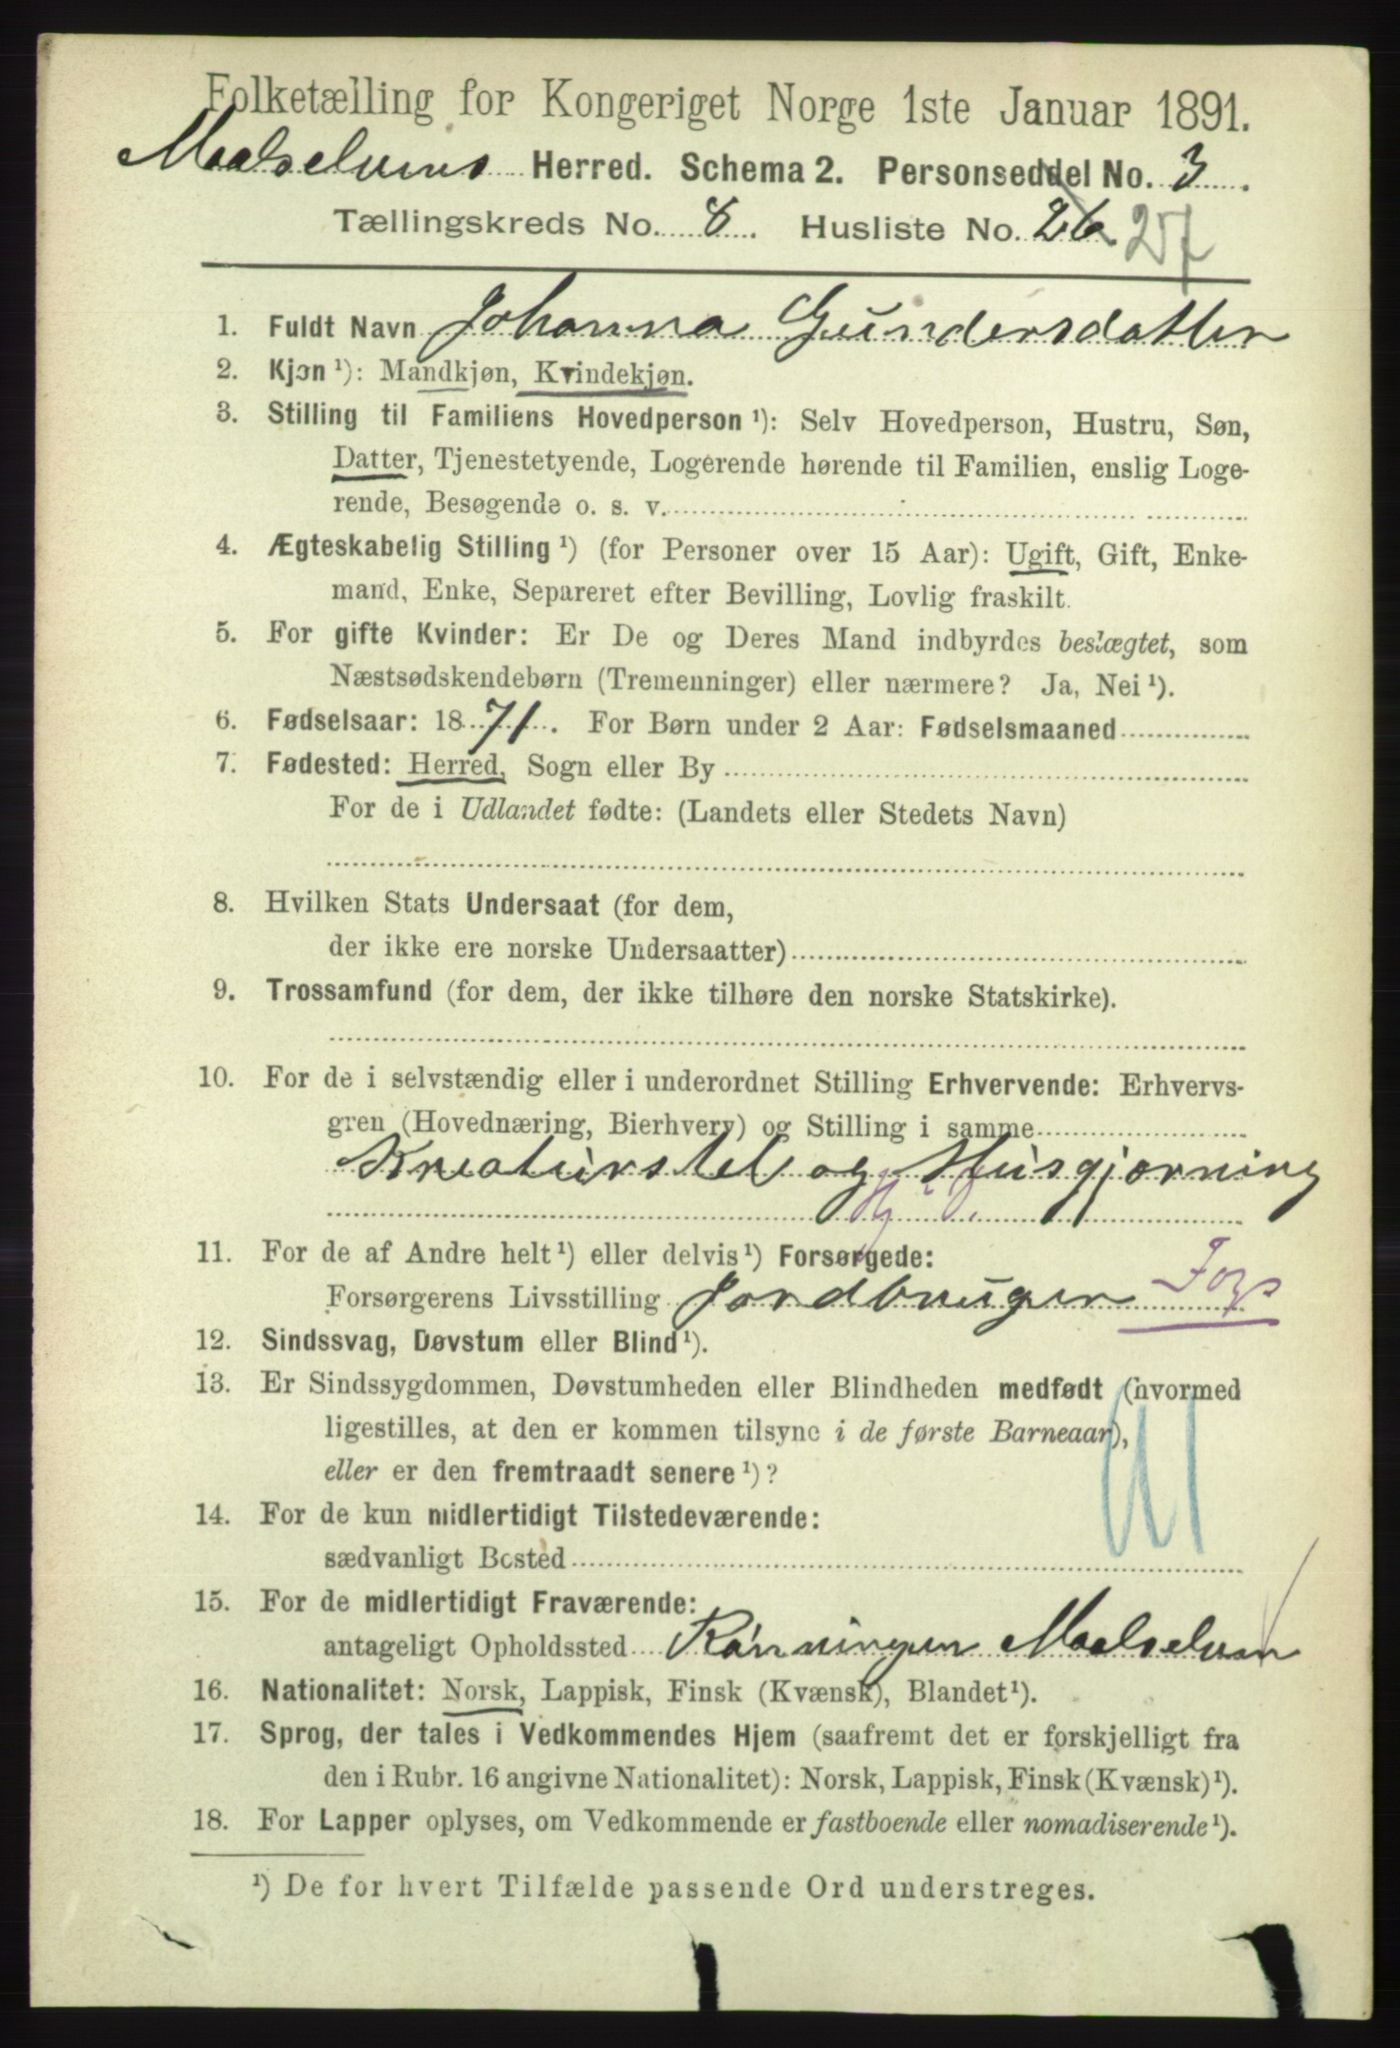 Folketælling for Kongeriget Norge 1ste Januar 1891.
Maalselvens Herred. Schema 2. Personseddel No. 3.
Tællingskreds No. 8. Husliste No. 26. 27
1. Fuldt Navn Johanna Gundersdatter
2. Kjøn ¹): Mandkjøn, Kvindekjøn.
3. Stilling til Familiens Hovedperson ¹): Selv Hovedperson, Hustru, Søn,
Datter, Tjenestetyende, Logerende hørende til Familien, enslig Loge-
rende, Besøgende o. s. v.
4. Ægteskabelig Stilling ¹) (for Personer over 15 Aar): Ugift, Gift, Enke-
mand, Enke, Separeret efter Bevilling, Lovlig fraskilt.
5. For gifte Kvinder: Er De og Deres Mand indbyrdes beslægtet, som
Næstsødskendebørn (Tremenninger) eller nærmere? Ja, Nei ¹).
6. Fødselsaar: 1871. For Børn under 2 Aar: Fødselsmaaned
7. Fødested: Herred, Sogn eller By
For de i Udlandet fødte: (Landets eller Stedets Navn)
8. Hvilken Stats Undersaat (for dem,
der ikke ere norske Undersaatter)
9. Trossamfund (for dem, der ikke tilhøre den norske Statskirke).
10. For de i selvstændig eller i underordnet Stilling Erhvervende: Erhvervs-
gren (Hovednæring, Bierhverv) og Stilling i samme
Kreaturstel og Husgjerning
11. For de af Andre helt ¹) eller delvis ¹) Forsørgede:
Forsørgerens Livsstilling Jordbruger
12. Sindssvag, Døvstum eller Blind ¹).
13. Er Sindssygdommen, Døvstumheden eller Blindheden medfødt (hvormed
ligestilles, at den er kommen tilsyne i de første Barneaar),
eller er den fremtraadt senere ¹)?
14. For de kun midlertidigt Tilstedeværende:
sædvanligt Bosted
15. For de midlertidigt Fraværende:
antageligt Opholdssted Rønningen Maalselven
16. Nationalitet: Norsk, Lappisk, Finsk (Kvænsk), Blandet ¹).
17. Sprog, der tales i Vedkommendes Hjem (saafremt det er forskjelligt fra
den i Rubr. 16 angivne Nationalitet): Norsk, Lappisk, Finsk (Kvænsk) ¹).
18. For Lapper oplyses, om Vedkommende er fastboende eller nomadiserende ¹).
¹) De for hvert Tilfælde passende Ord understreges.